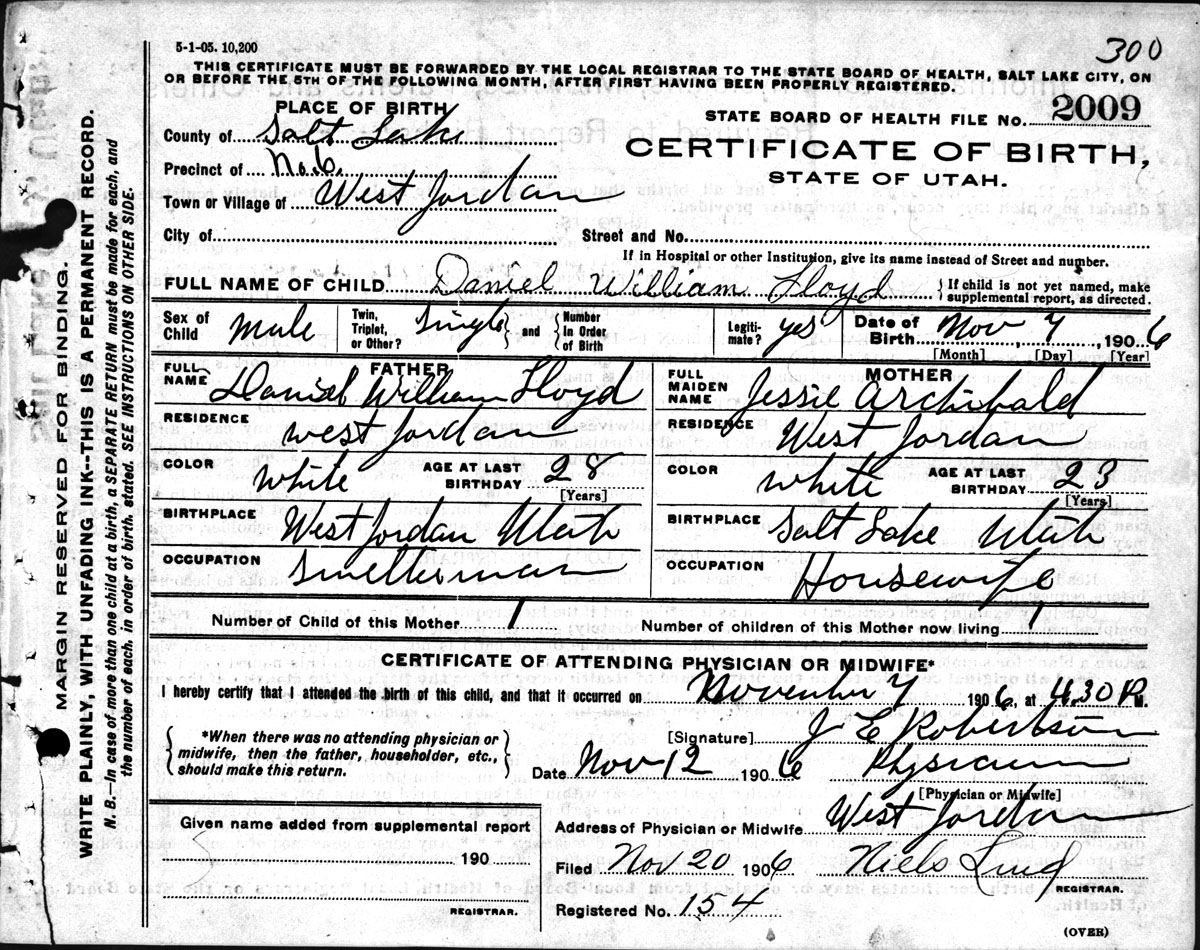 300
5-1-05. 10,200
THIS CERTIFICATE MUST BE FORWARDED BY THE LOCAL REGISTRAR TO THE STATE BOARD OF HEALTH, SALT LAKE CITY, ON
OR BEFORE THE 5TH OF THE FOLLOWING MONTH, AFTER FIRST HAVING BEEN PROPERLY REGISTERED.
PLACE OF BIRTH
County of Salt Lake
Precinct of No. 6.
Town or Village of West Jordan
STATE BOARD OF HEALTH FILE No. 2009
CERTIFICATE OF BIRTH,
STATE OF UTAH.
City of Street and No.
If in Hospital or other Institution, give its name instead of Street and number.
FULL NAME OF CHILD Daniel William Lloyd { If child is not yet named, make
supplemental report, as directed.
Sex of Child Male Twin, Triplet, or Other? Single } and { Number In Order of Birth Legiti-mate? yes Date of Birth Nov 7, 1906
[Month] [Day] [Year]
FATHER
FULL NAME Daniel William Lloyd
RESIDENCE West Jordan
COLOR White AGE AT LAST BIRTHDAY 28
[Years]
BIRTHPLACE West Jordan Utah
OCCUPATION Smelterman
MOTHER
FULL MAIDEN NAME Jessie Archibald
RESIDENCE West Jordan
COLOR White AGE AT LAST BIRTHDAY 23
[Years]
BIRTHPLACE Salt Lake Utah
OCCUPATION Housewife
Number of Child of this Mother 1 Number of children of this Mother now living 1
CERTIFICATE OF ATTENDING PHYSICIAN OR MIDWIFE*
I hereby certify that I attended the birth of this child, and that it occurred on November 7 1906, at 4.30 P.M.
{ *When there was no attending physician or
midwife, then the father, householder, etc.,
should make this return. }
[Signature] J E Robertson
Date Nov 12 1906 Physician
[Physician or Midwife]
Address of Physician or Midwife West Jordan
Filed Nov 20 1906 Niels Lind
REGISTRAR.
Registered No. 154
(OVER)
Given name added from supplemental report
190
REGISTRAR.
MARGIN RESERVED FOR BINDING.
WRITE PLAINLY, WITH UNFADING INK--THIS IS A PERMANENT RECORD.
N. B.—In case of more than one child at a birth, a SEPARATE RETURN must be made for each, and
the number of each, in order of birth, stated. SEE INSTRUCTIONS ON OTHER SIDE.